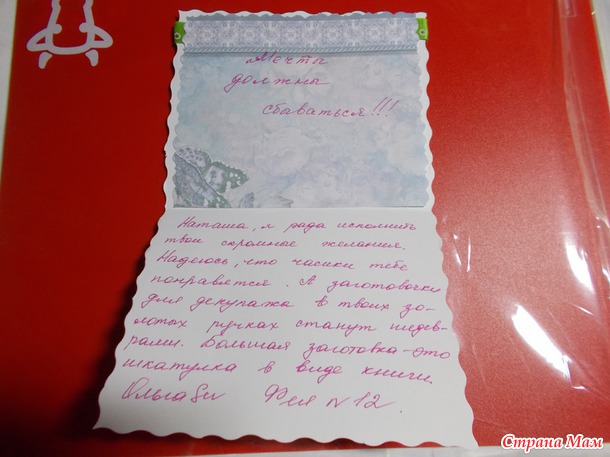 Мечты
должны
сбаваться!!!
Наташа, я рада исполнить
твои скромные желания.
Надеюсь, что часики тебе
понравятся. А заготовочки
для декупажа в твоих зо-
лотых ручках станут шедев-
рами. Большая заготовка-это
шкатулка в виде книги.
Фея №12.
Страна Мам